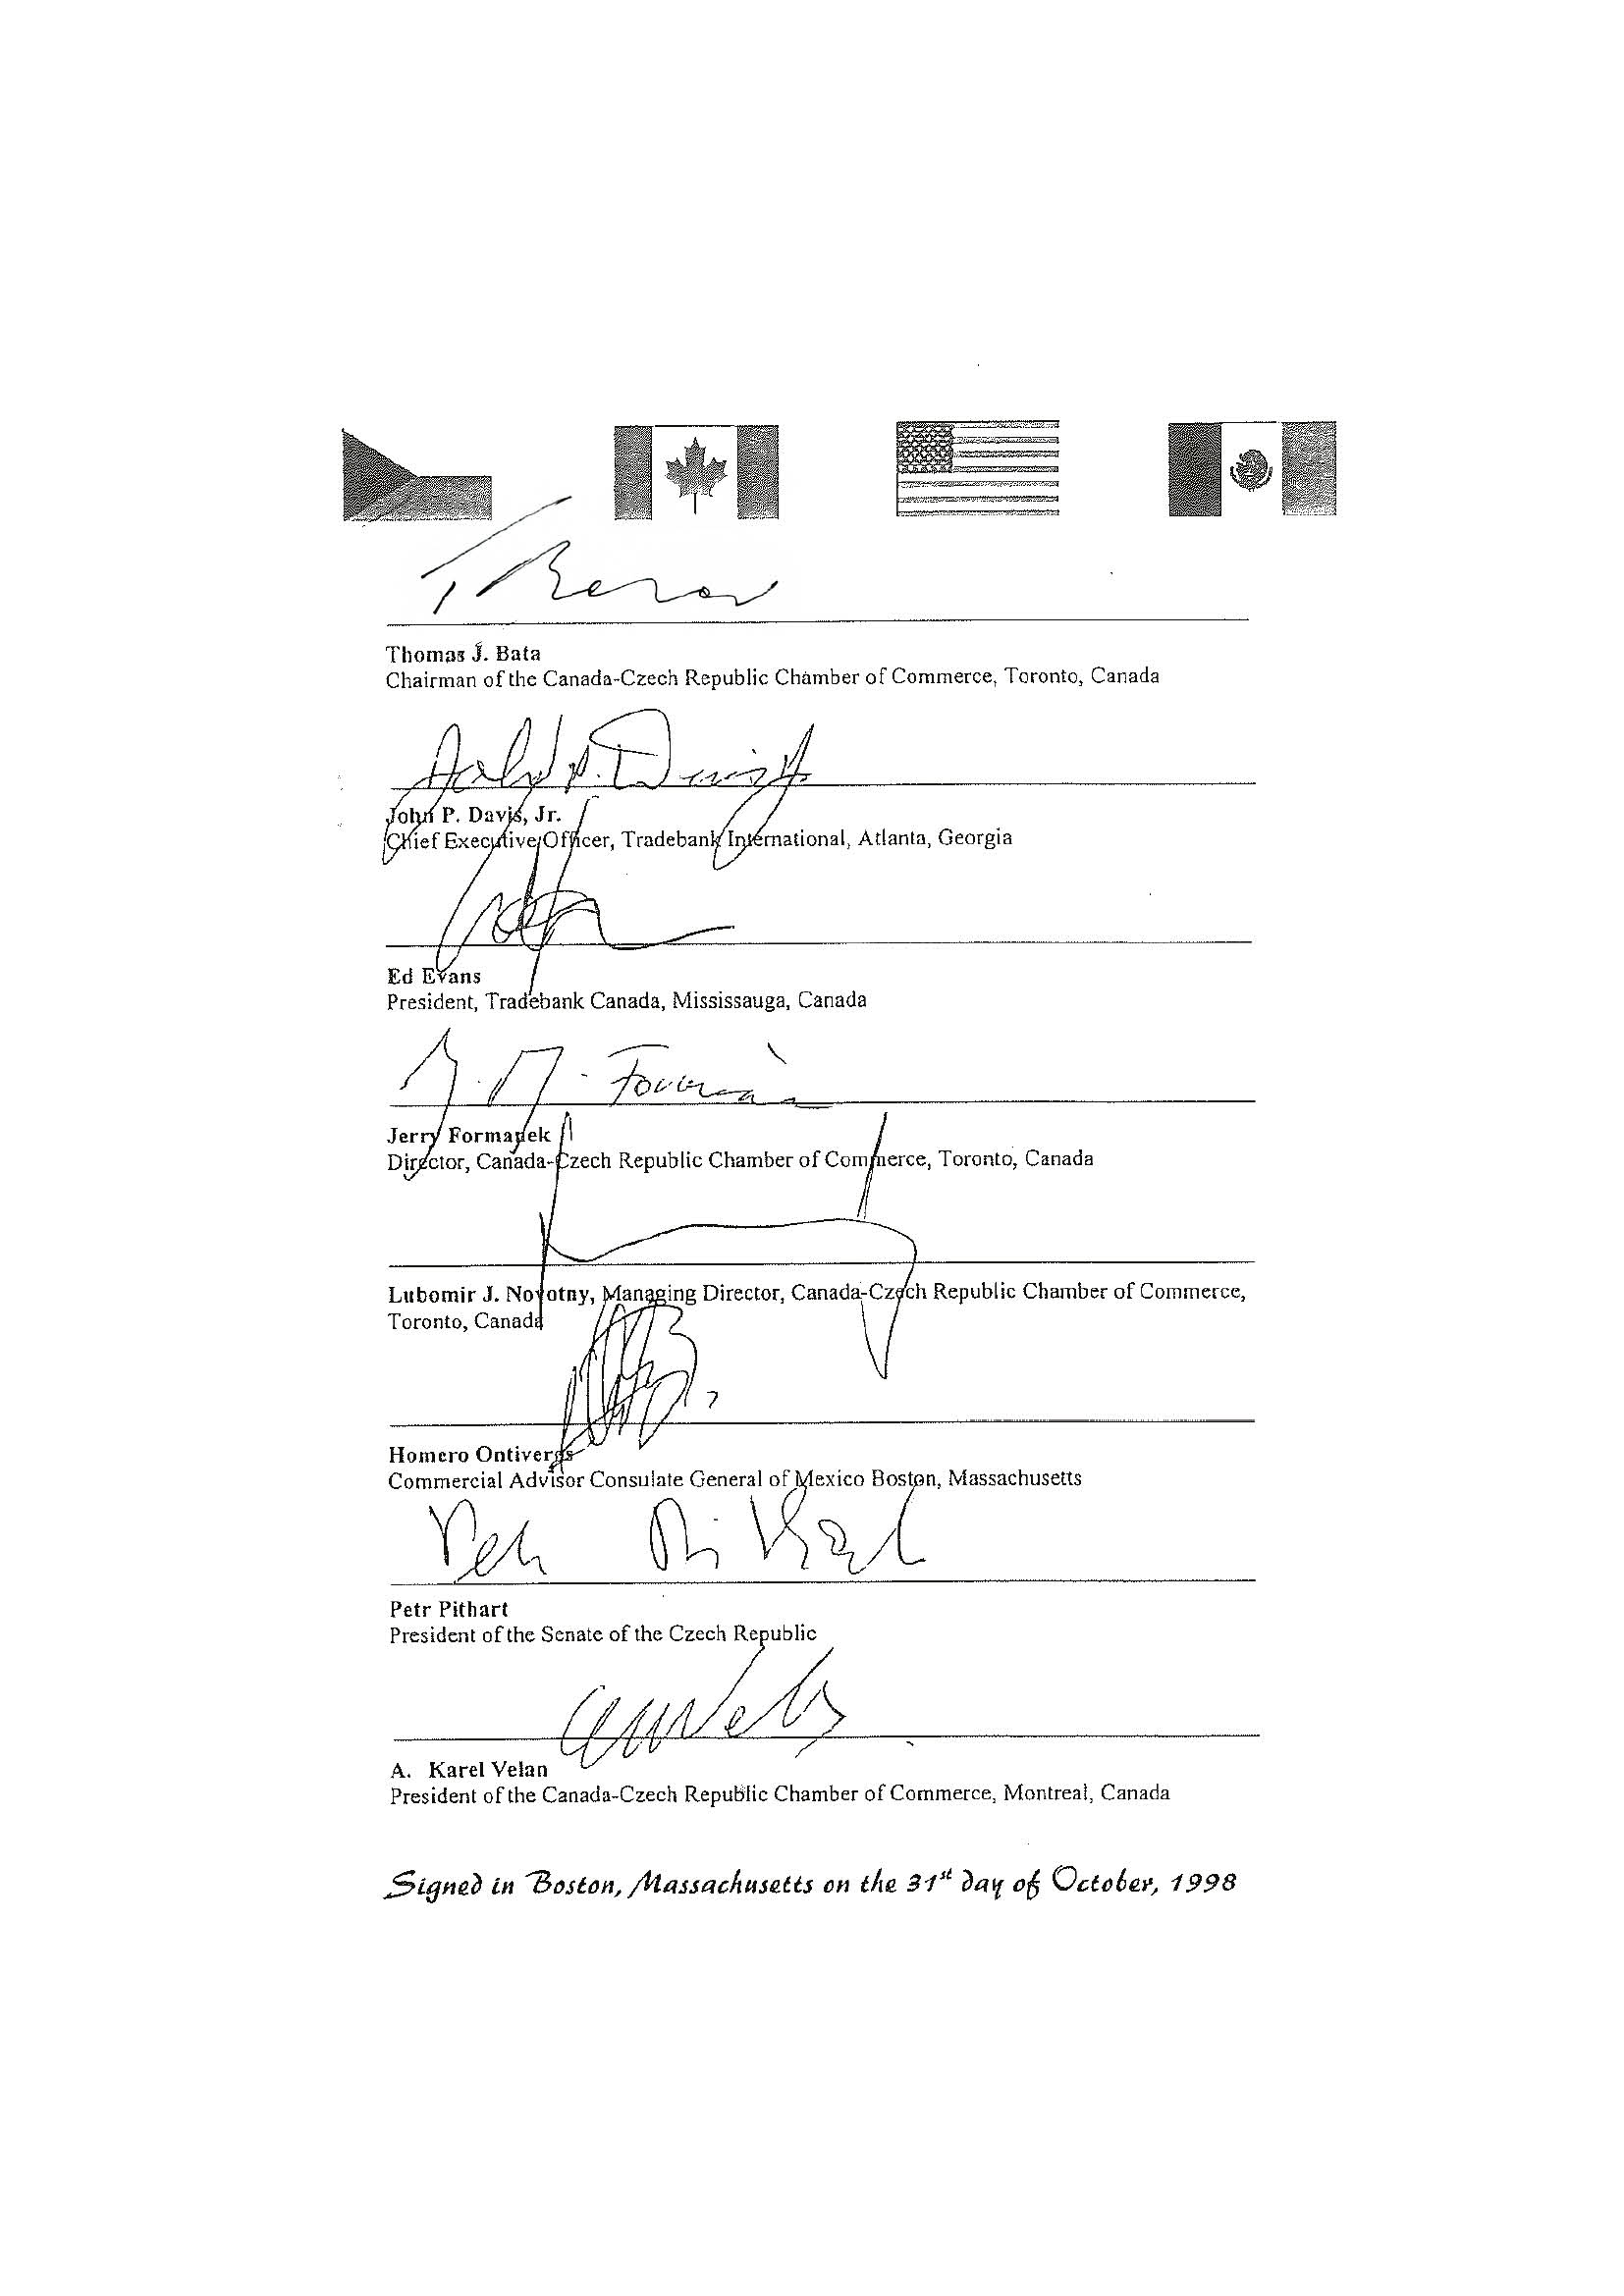 Thomas J. Bata
Chairman of the Canada-Czech Republic Chamber of Commerce, Toronto, Canada
John P. Davis, Jr.
Chief Executive Officer, Tradebank International, Atlanta, Georgia
Ed Evans
President, Tradebank Canada, Mississauga, Canada
Jerry Formanek
Director, Canada-Czech Republic Chamber of Commerce, Toronto, Canada
Lubomir J. Novotny, Managing Director, Canada-Czech Republic Chamber of Commerce,
Toronto, Canada
Homero Ontiveros
Commercial Advisor Consulate General of Mexico Boston, Massachusetts
Petr Pithart
Petr Pithart
President of the Senate of the Czech Republic
A. Karel Velan
President of the Canada-Czech Republic Chamber of Commerce, Montreal, Canada
Signed in Boston, Massachusetts on the 31st day of October, 1998